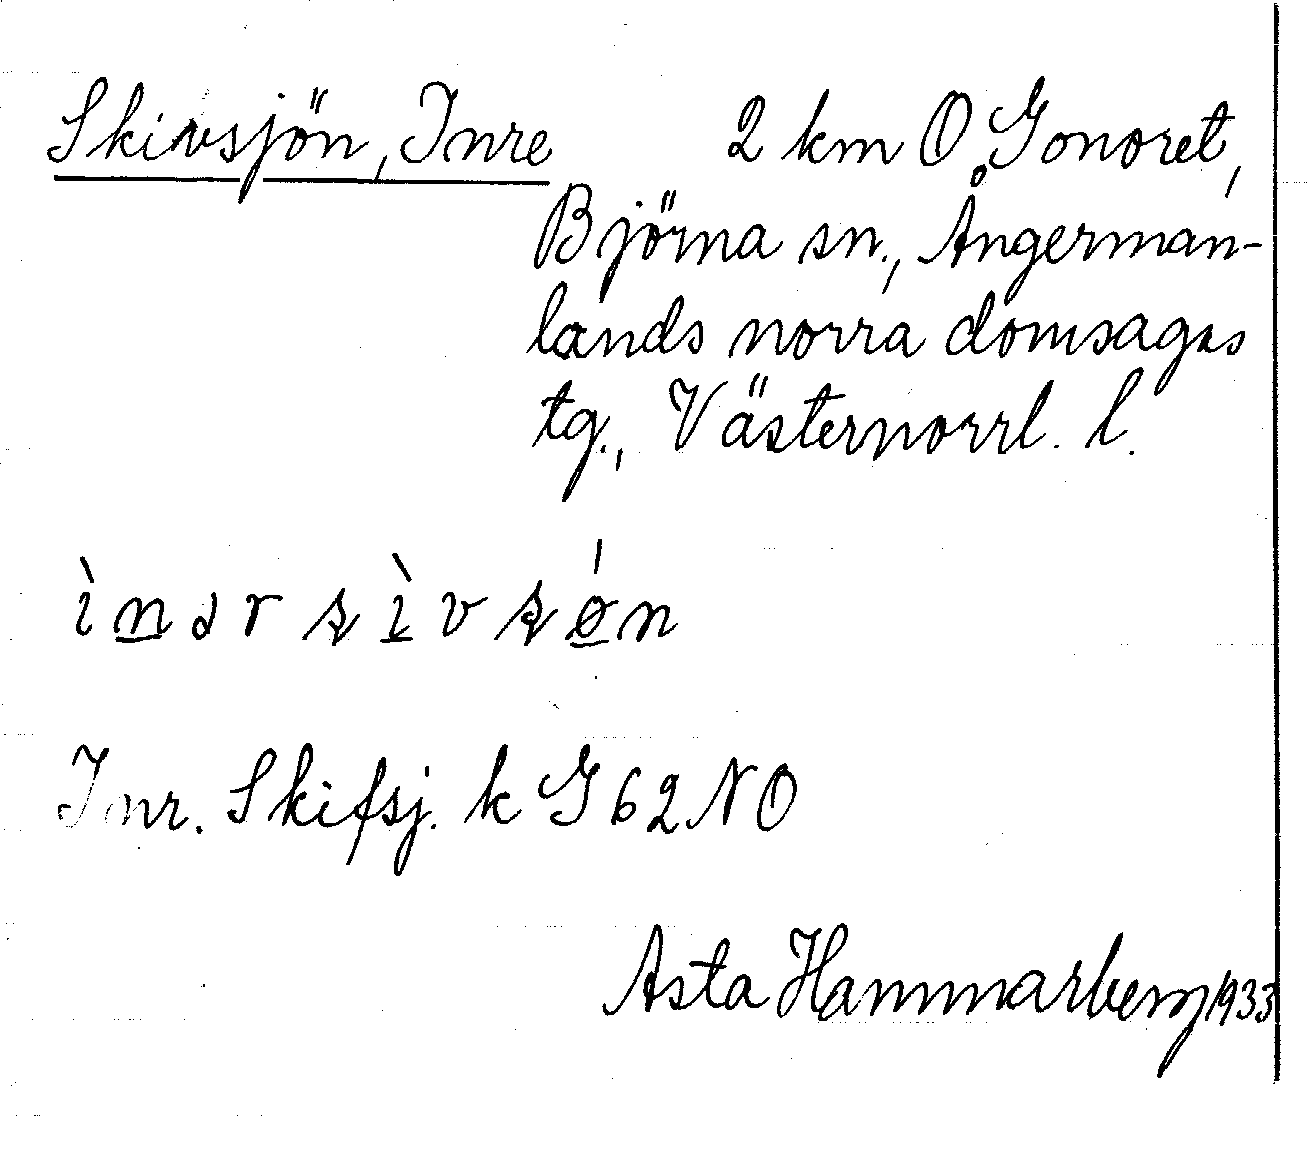 Skivsjön, Inre 2 km O Gonoret,
Björna sn., Ångerman-
lands norra domsagas
tg., Västernorrl. l.
Inr. Skifsj. k G 62 NO
Asta Hammarberg 1933